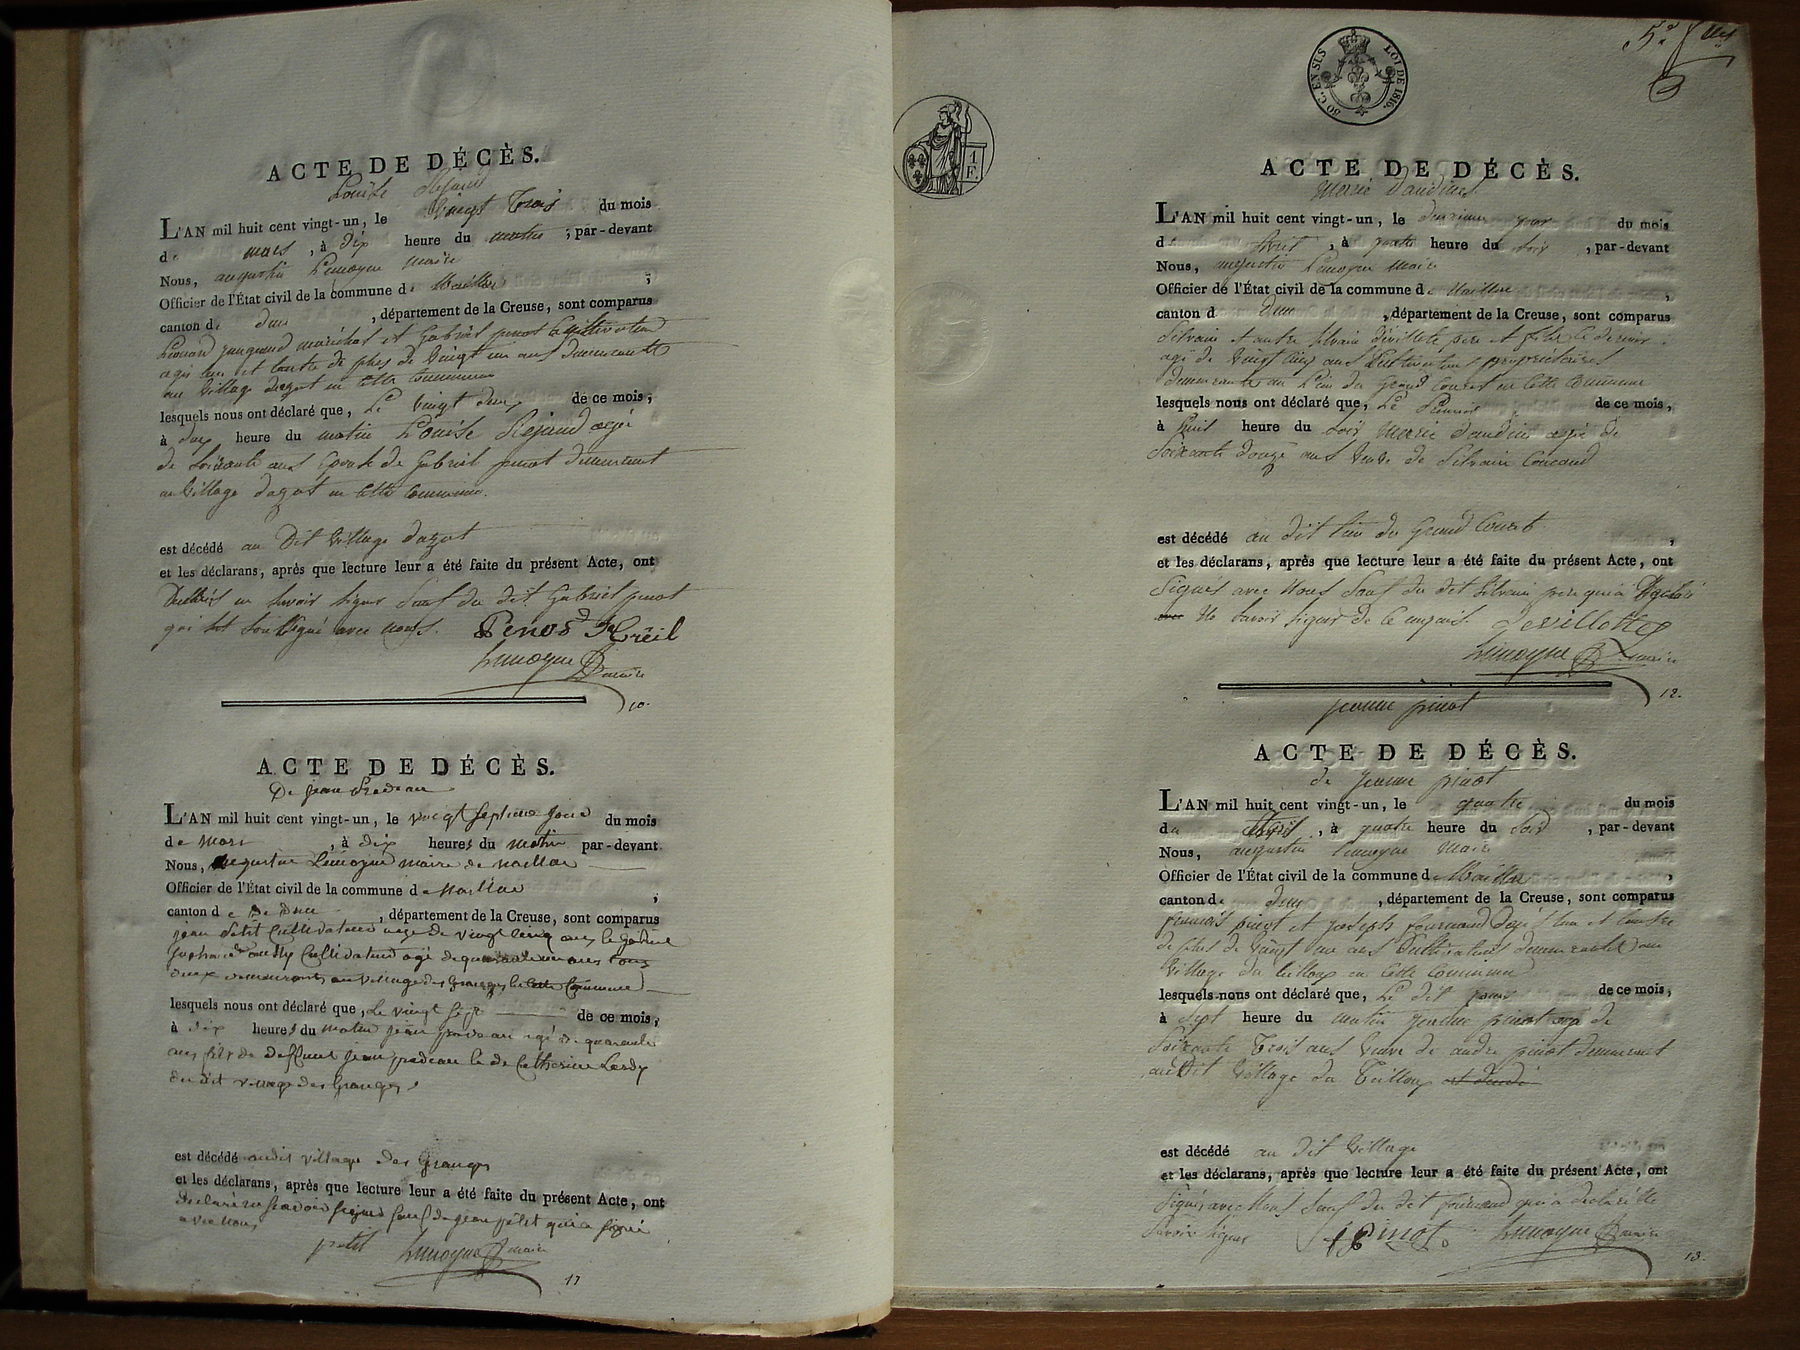 ACTE DE DÉCÈS.
Louise Rejaud
L'AN mil huit cent vingt-un, le vingt trois du mois
de mars, à dix heure du matin; par-devant
Nous, augustin Lemoyne maire
Officier de l'État civil de la commune de Maillac;
canton de dun, département de la Creuse, sont comparus
maréchal et Gabriel pinot Cultivateur
agés lun et lautre de plus de vingt un ans demeurants
au village dazat en cette commune
lesquels nous ont déclaré que, Le vingt deux de ce mois,
à dix heure du matin Louise Rejaud agée
de soixante ans Epouse de Gabriel pinot demeurant
au village dazat en cette commune.
est décédé au dit village dazat
et les déclarans, après que lecture leur a été faite du présent Acte, ont
savoir signer sauf du dit Gabriel pinot
qui set soussigné avec nous. Penos
Lemoyne maire
10.
ACTE DE DÉCÈS.
De jean Pradeau
L'AN mil huit cent vingt-un, le vingt septieme jour du mois
de mars, à dix heures du matin par-devant
Nous, augustin Lemoyne maire de naillac
Officier de l'État civil de la commune de Naillac;
canton de De Dun, département de la Creuse, sont comparus
jean petit Cultivateur age de vingt cinq ans
Cultivateur agé de quarante ans tous
deux demeurants au village des Granges Commune
lesquels nous ont déclaré que, le vingt sept de ce mois,
à dix heures du matin jean pradeau agé de quarante
ans fils de deffunt jean pradeau et de Catherine Lardy
du dit village des Granges
est décédé audit village des Granges
et les déclarans, après que lecture leur a été faite du présent Acte, ont
declaré ne scavoir signer sauf de jean petit qui a signé
avec nous
petit Lemoyne maire
11
1
F.
80 C. EN SUS LOI DE 1816.
5.e
ACTE DE DÉCÈS.
Marie Daudin
L'AN mil huit cent vingt-un, le deuxieme jour du mois
d avril, à quatre heure du soir, par-devant
Nous, augustin Lemoyne maire
Officier de l'État civil de la commune de Naillac,
canton d dun, département de la Creuse, sont comparus
Silvain et autre Silvain Devillete pere et fils le dernier
agé de vingt cinq ans Cultivateurs propriétaires
demeurants au Lieu du Grand Couret en cette commune
lesquels nous ont déclaré que, Le Premier de ce mois,
à huit heure du soir Marie Daudin agée de
soixante douze ans veuve de Silvain Coucaud
est décédé au dit lieu du Grand Couret,
et les déclarans, après que lecture leur a été faite du présent Acte, ont
Signés avec Nous sauf du dit Silvain pere qui a déclaré
ne savoir signer de ce enquis. devillette
Lemoyne maire
12.
jeanne pinot
ACTE DE DÉCÈS.
de jeanne pinot
L'AN mil huit cent vingt-un, le quatre du mois
du avril, à quatre heure du soir, par-devant
Nous, augustin Lemoyne Maire
Officier de l'État civil de la commune de Naillac,
canton de dun, département de la Creuse, sont comparus
francois pinot et joseph fournaud agés lun et lautre
de plus de vingt un ans Cultivateurs demeurants au
village du teilloux en cette commune
lesquels nous ont déclaré que, Le dit jour de ce mois,
à sept heure du matin jeanne pinot agé de
soixante trois ans veuve de andre pinot demeurant
au dit village du Teilloux
est décédé au dit village
et les déclarans, après que lecture leur a été faite du présent Acte, ont
Signés avec Nous sauf du dit fournaud qui a declaré ne
savoir signer pinot Lemoyne maire
13.